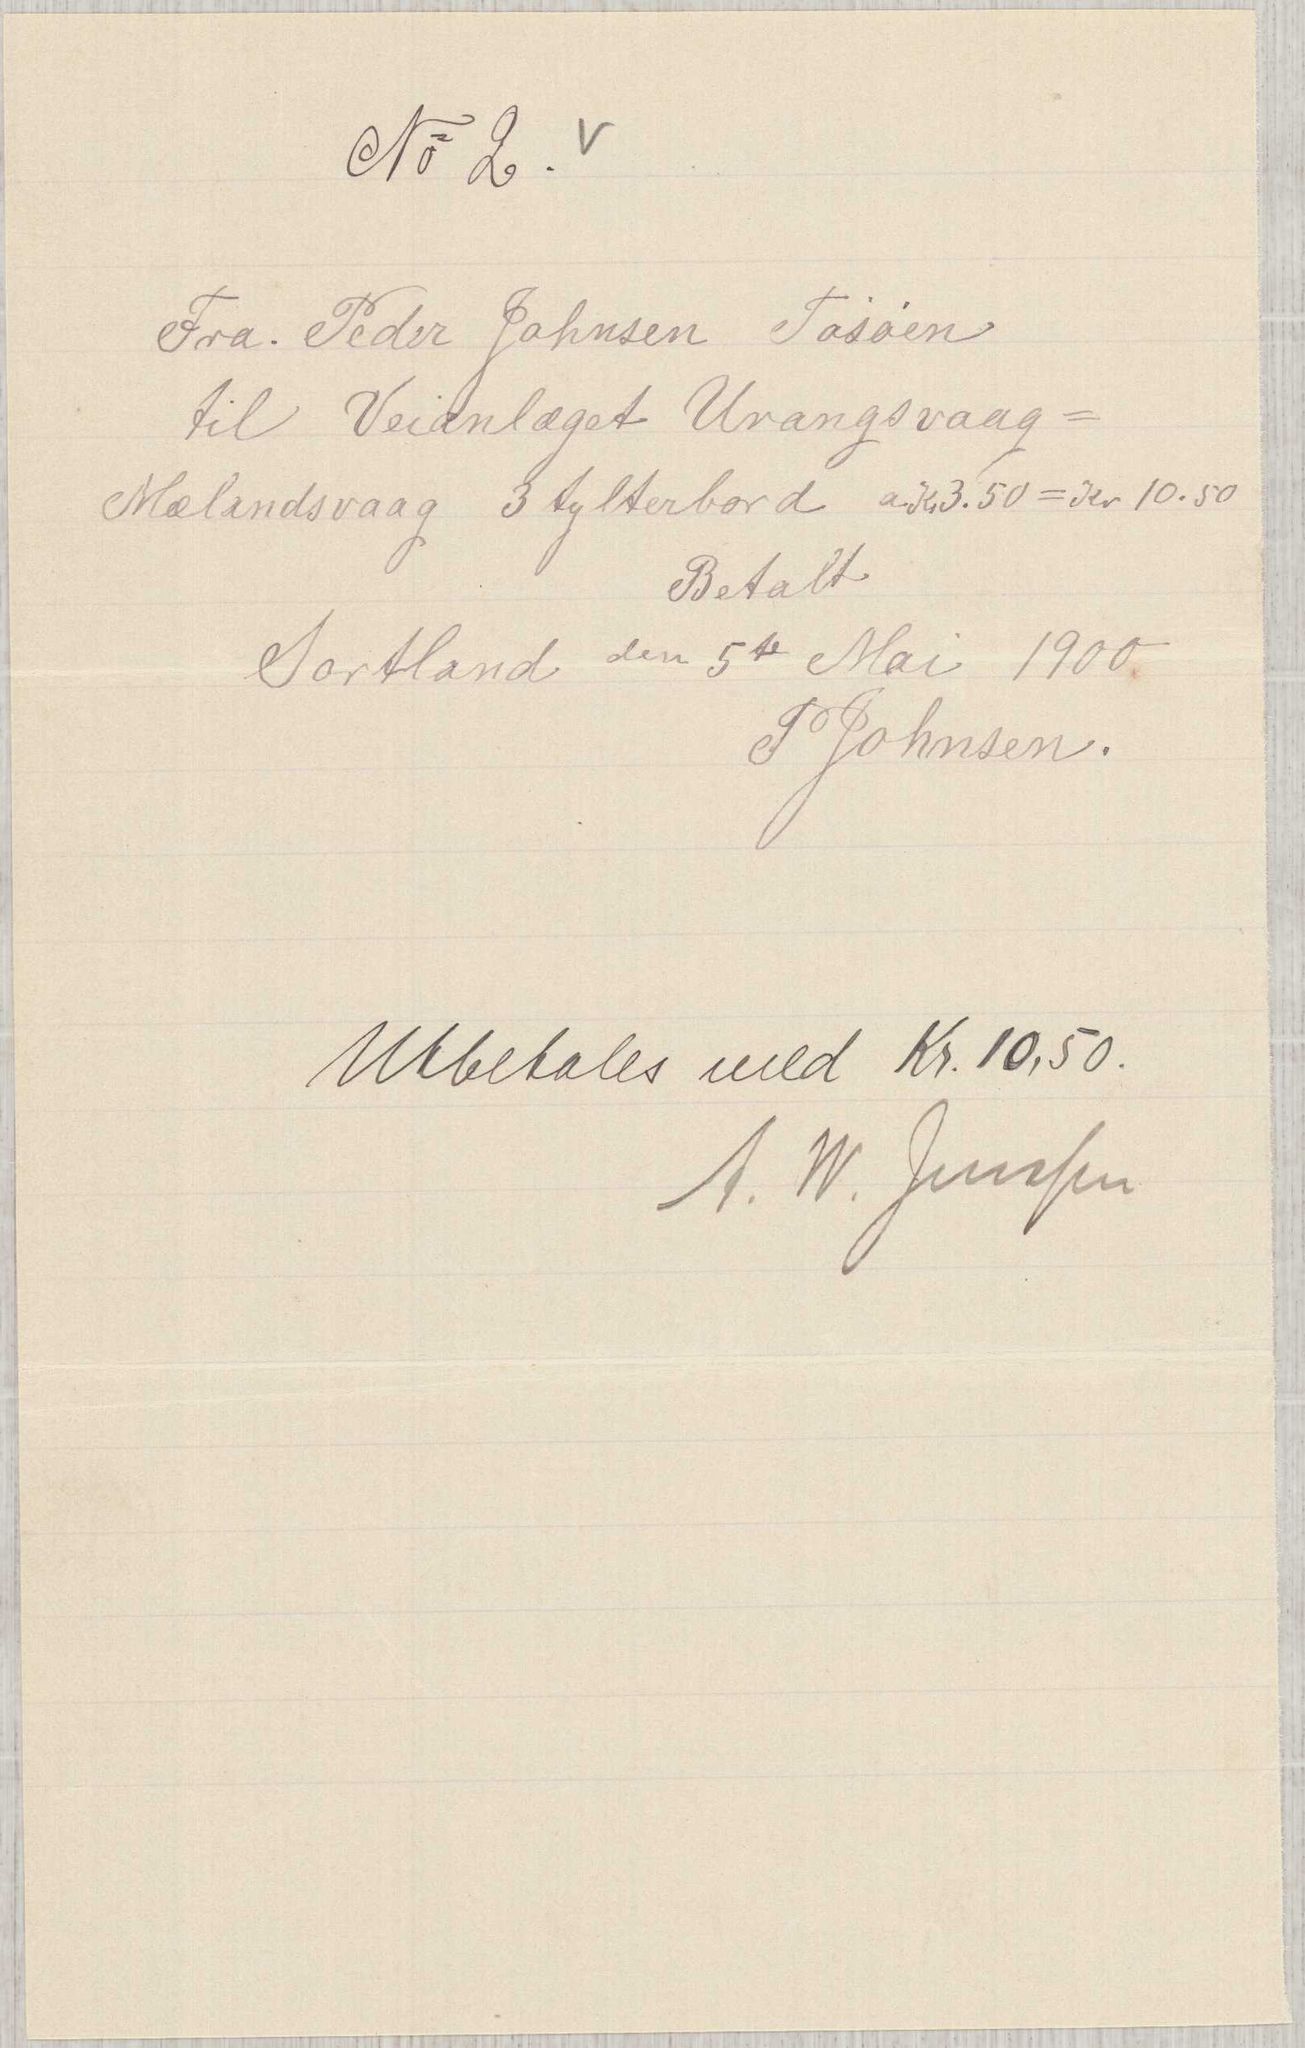 No 2. v
Fra. Peder Johnsen Tosöen
til Veianlæget Urangsvaag=
Mælandsvaag 3 tylterbord a Kr 3.50 = Kr 10.50
Betalt
Sortland den 5te Mai 1900
P Johnsen.
Utbetales med Kr. 10,50.
A. W. Jenssen